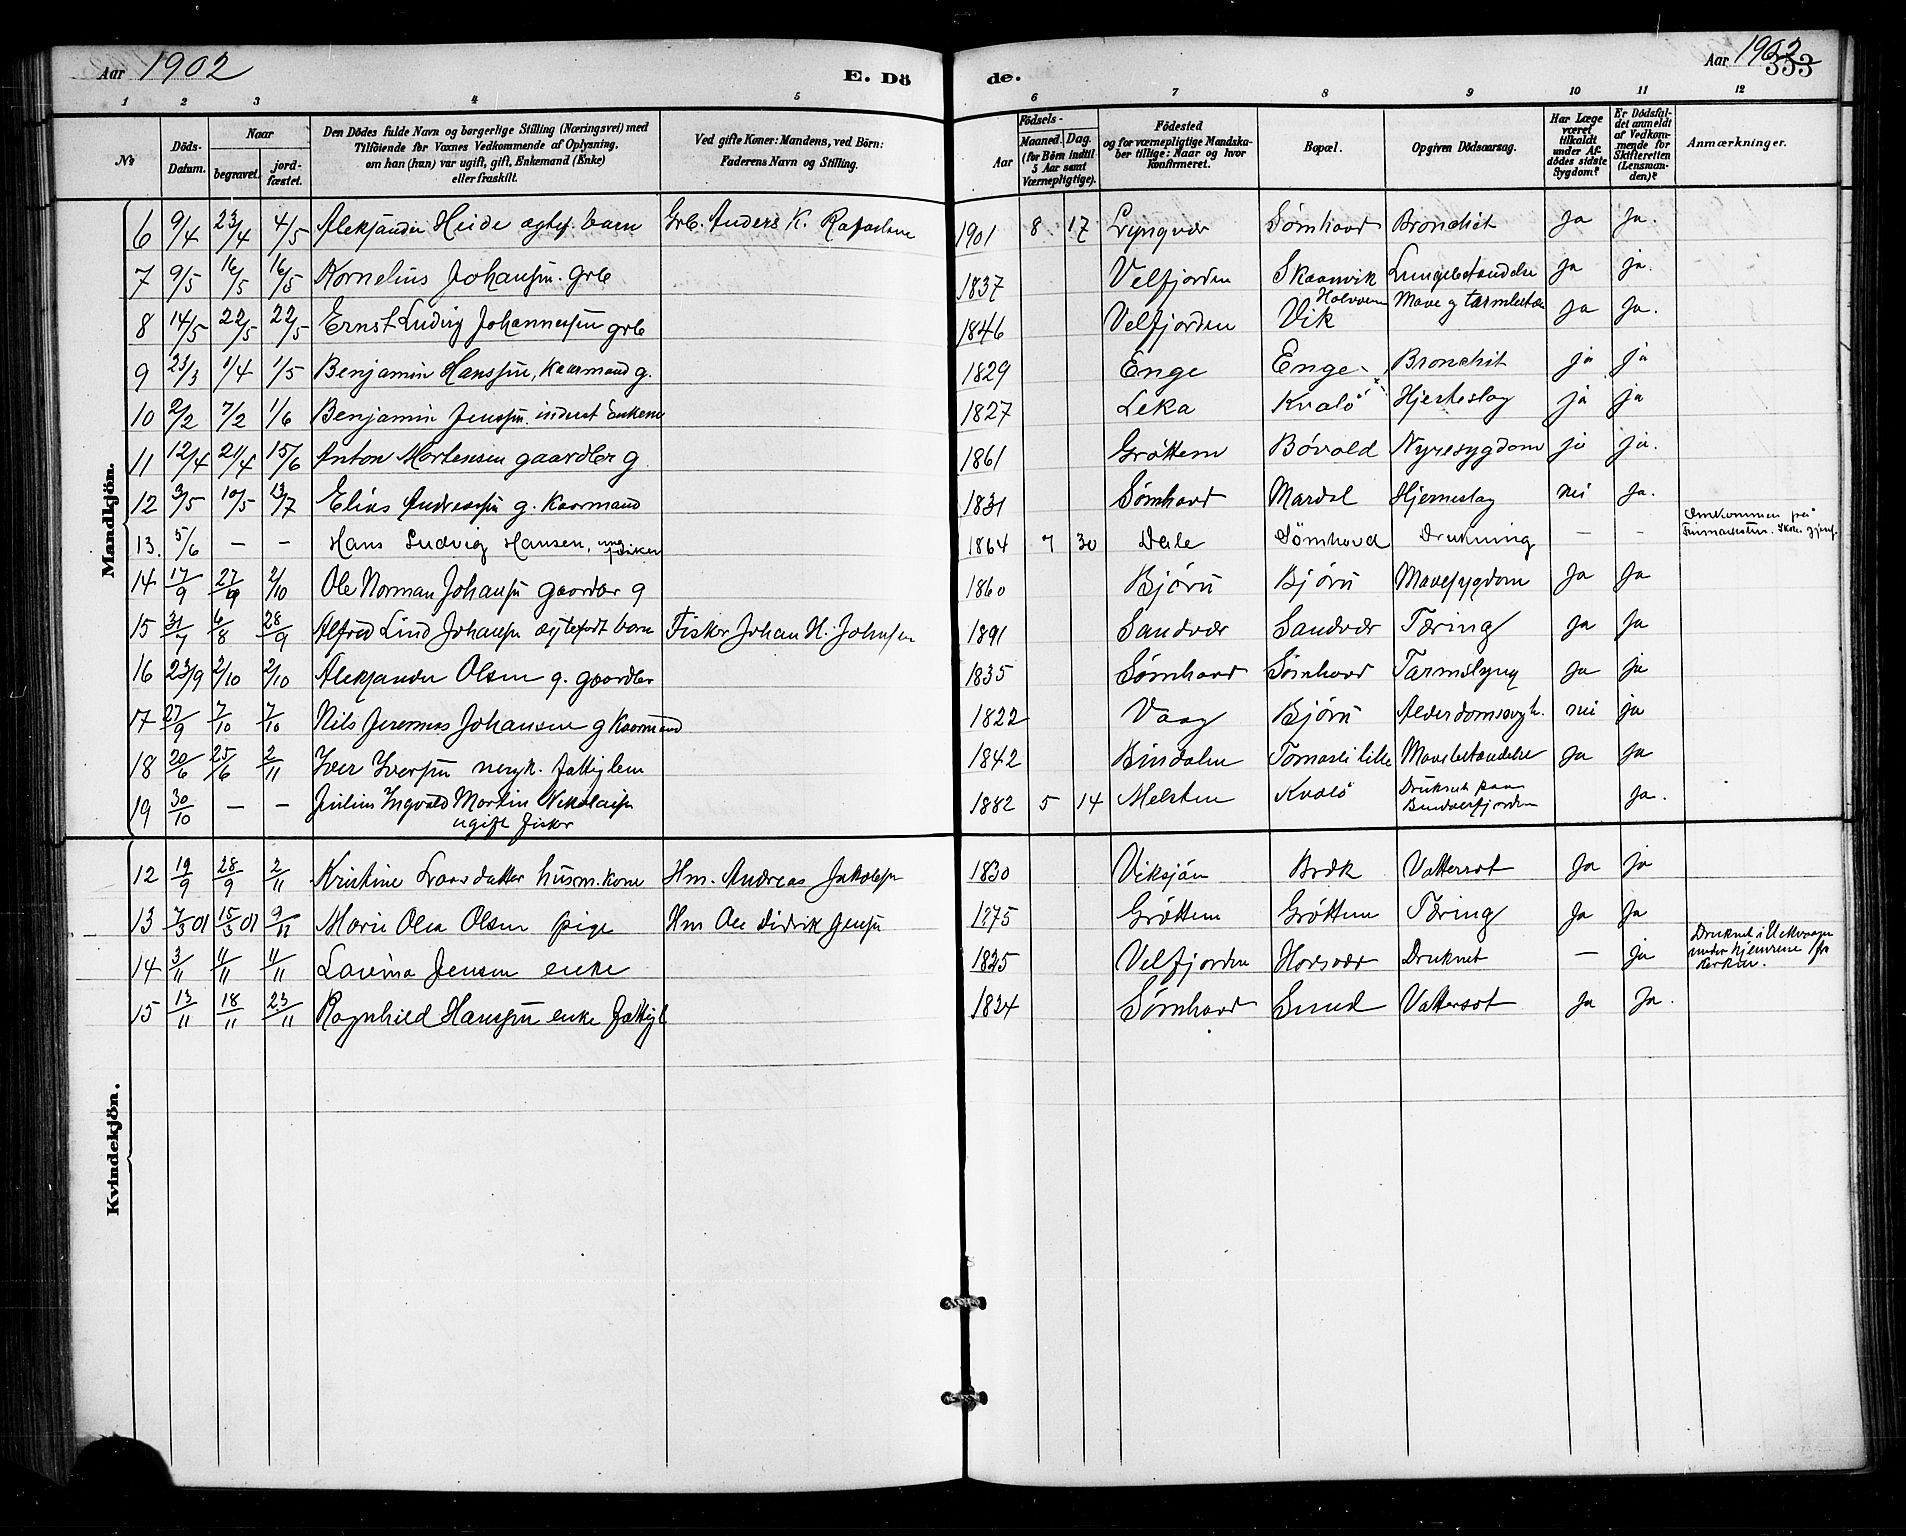 Aar 1902
E. Dö
de.
Aar 1902
333
1 2 3 4 5 6 7 8 9 10 11 12
№
Döds-Datum.
Naar
begravet.
jordfæstet.
Den Dödes fulde Navn og borgerlige Stilling (Næringsvei) med
Tilföiende for Voxnes Vedkommende af Oplysning,
om han (hun) var ugift, gift, Enkemand (Enke)
eller fraskilt.
Ved gifte Koner: Mandens, ved Börn:
Faderens Navn og Stilling.
Födsels-
Aar
Maaned. Dag.
(for Börn indtil
5 Aar samt
Værnepligtige).
Födested
og for værnepligtige Mandskaber
tillige: Naar og hvor
konfirmeret.
Bopæl.
Opgiven Dödsaarsag.
Har Læge
været
tilkaldt
under Afdödes
sidste
Sygdom?
Er Dödsfaldet
anmeldt
af Vedkommende
for
Skifteretten
(Lensmanden)?
Anmærkninger.
Mandkjön.
6 9/4 23/4 4/5 Aleksander Heide ægtef. barn Grb. Anders K. 1901 8 17 Lyngvær Sømhovd Bronchit Ja Ja.
7 9/5 16/5 16/5 Kornelius Johansen. grb 1837 Velfjorden Skaanvik Lungebetændelse ja ja.
8 14/5 22/5 22/5 Ernst Ludvig Johannessen grb 1846 Velfjorden Vik Mave og tarmbetæn ja ja.
9 23/3 1/4 1/5 Benjamin Hanssen, kaarmand g. 1829 Enge Enge Bronchit ja ja
10 2/2 7/2 1/6 Benjamin Jenssen inderst Enkem 1827 Leka Kvalö Hjerteslag ja ja
11 12/4 21/4 15/6 Anton Mortensen gaardbr g. 1861 Grøttem Bøvold Nyresygdom ja ja.
12 3/5 10/5 13/7 Elias Andreassen g. Kaarmand 1831 Sømhovd Mardal Hjerneslag nei Ja.
13. 5/6 – – Hans Ludvig Hansen, ung fisker 1864 7 30 Dale Sømhovd Drukning – – Omkommen på
14 17/9 27/9 2/10 Ole Norman Johansen gaardbr g 1860 Bjørn Bjørn Mavesygdom Ja Ja
15 31/7 6/8 28/9 Alfred Lind Johansen ægtefødt barn Fisker Johan H. Johnsen 1891 Sandvær Sandvær Tæring ja Ja
16 23/9 2/10 2/10 Aleksander Olsen g. gaardbr 1835 Sømhovd Sømhovd Tarmslyng Ja ja
17 27/9 7/10 7/10 Nils Jeremias Johansen g Kaarmand 1822 Vaag Bjørn Alderdomssvagh. nei ja
18 20/6 25/6 2/11 Iver Iversen fattiglem 1842 Bindalen lille Mavebetændelse Ja Ja
19 30/10 – – Julius Ingvald Martin Nikolaisen
ugift fisker 1882 5 14 Melsten Kvalö Druknet paa
Bindalsfjorden Ja.
Kvindekjön.
12 19/9 28/9 2/11 Kristine Larsdatter husm.kone Hm. Andreas Jakobsen 1830 Viksjøn Bræk Vattersot Ja ja
13 7/3 01 15/3 01 9/11 Marie Olea Olsen pige Hm Ole Didrik Jensen 1875 Grøttem Grøttem Tæring Ja Ja
14 3/11 11/11 11/11 Lavina Jensen enke 1825 Velfjorden Horsvær Druknet – ja Druknet i
under hjemreise fra
kirken.
15 13/11 18/11 23/11 Ragnhild Hanssen enke fattigl 1824 Sømhovd Sund Vattersot Ja Ja.